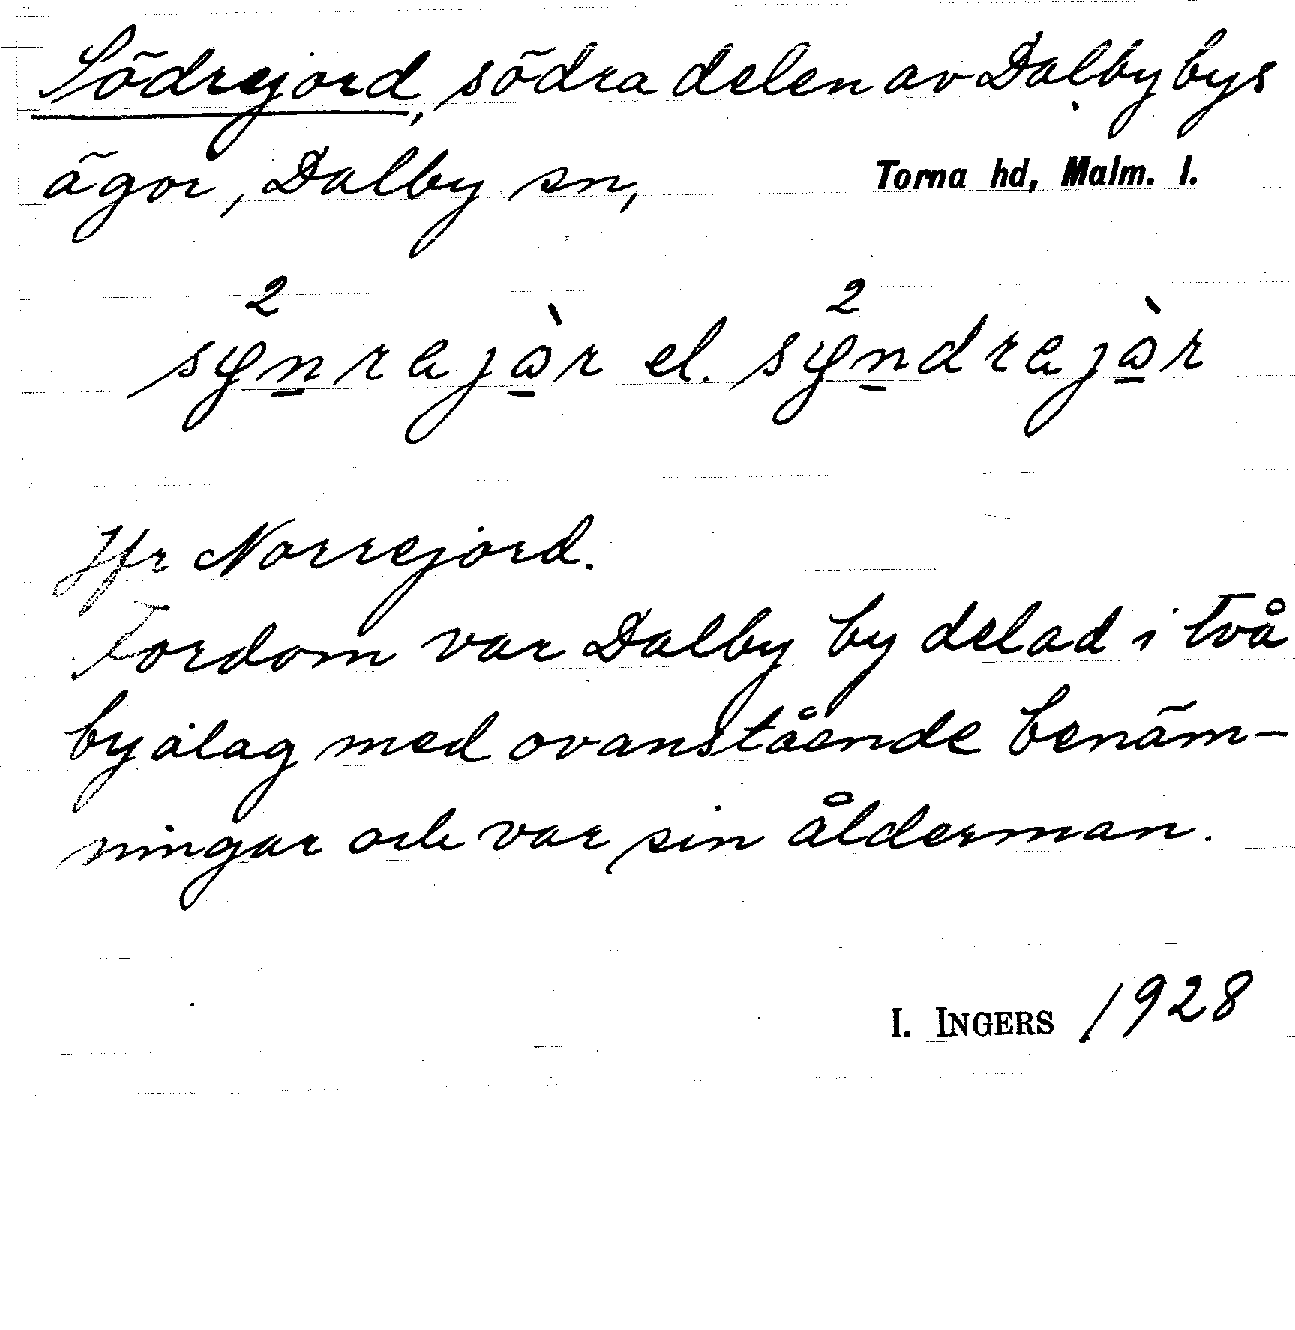 Södrejord, södra delen av Dalby bys
ägor, Dalby sn, Torna hd, Malm. l.
Jfr Norrejord.
Fordom var Dalby by delad i två
byalag med ovanstående benäm-
ningar och var sin ålderman.
I. INGERS 1928